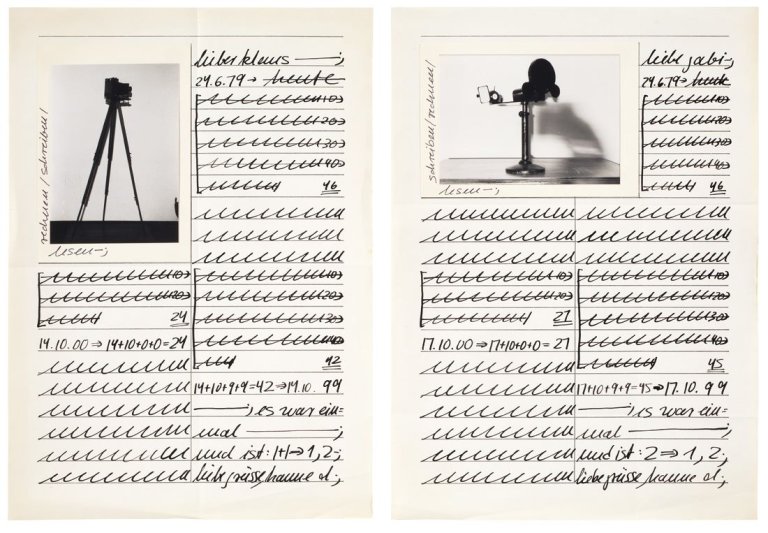 lieber klaus —;
24.6.79 → heute
10
20
30
40
46
rechnen / schreiben /
lesen –;
10
20
24
14.10.00 ⇒ 14+10+0+0=24
10
20
30
40
42
14+10+9+9=42 ⇒ 14.10.99
—; es war ein=
mal —;
und ist: 1+1 ⇒ 1, 2;
liebe grüsse, hanne d;
liebe gabi –;
24.6.79 → heute
10
20
30
40
46
schreiben / rechnen /
lesen –;
10
20
27
17.10.00 ⇒ 17+10+0+0=27
10
20
30
40
45
17+10+9+9=45 ⇒ 17.10.99
—; es war ein=
mal —;
und ist: 2 ⇒ 1, 2;
liebe grüsse, hanne d;